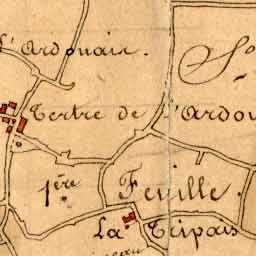 l'Ardouair.
So
Tertre de l'Ardou
1ère Feuille.
La Tripais